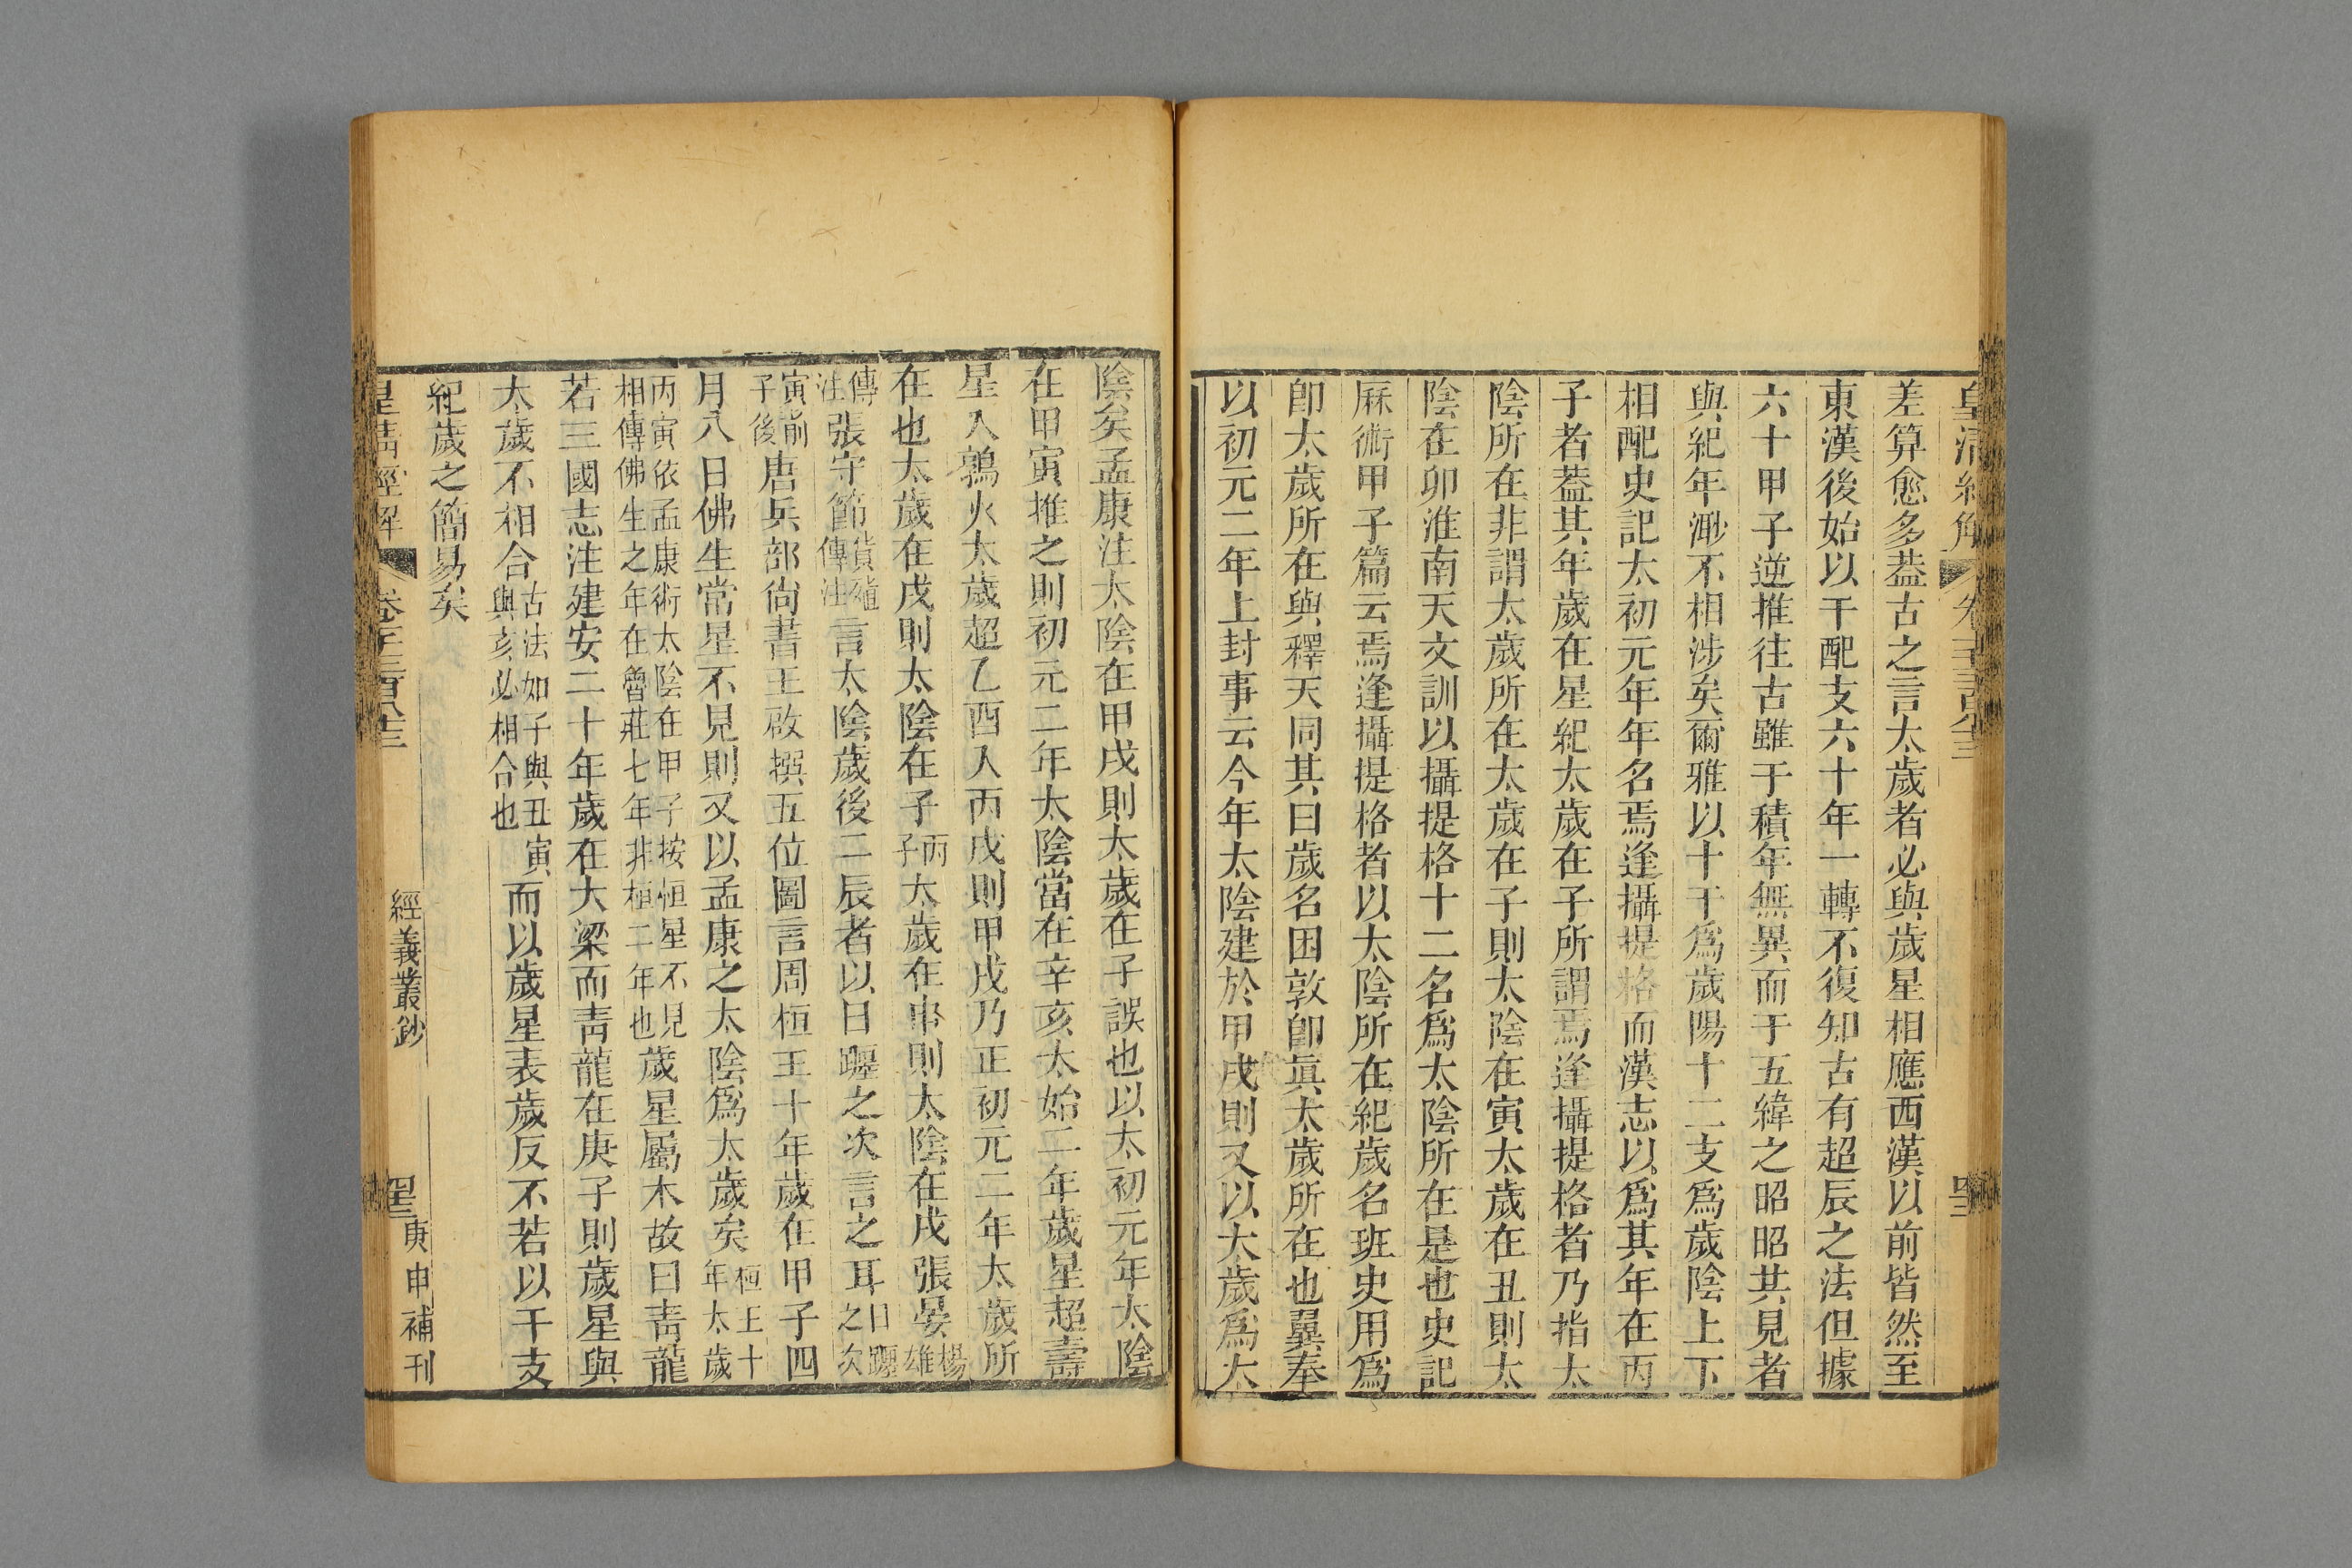 差算愈多葢古之言太歲者必與歲星相應西漢以前皆然至
東漢後始以干配支六十年一轉不復知古有超辰之法但據
六十甲子逆推往古雖于積年無異而于五緯之昭昭共見者
與紀年渺不相涉矣爾雅以十干爲歲陽十二支爲歲陰上下
相配史記太初元年年名焉逢攝提格而漢志以爲其年在丙
子者葢其年歲在星紀太歲在子所謂焉逢攝提格者乃指太
陰所在非謂太歲所在太歲在子則太陰在寅太歲在丑則太
陰在卯淮南天文訓以攝提格十二名爲太陰所在是也史記
厤術甲子篇云焉逢攝提格者以太陰所在紀歲名班史用爲
卽太歲所在與釋天同其曰歲名困敦卽眞太歲所在也翼奉
以初元二年上封事云今年太陰建於甲戌則又以太歲爲太
陰矣孟康注太陰在甲戌則太歲在子誤也以太初元年太陰
在甲寅推之則初元二年太陰當在辛亥太始二年歲星超壽
星入鶉火太歲超乙酉入丙戌則甲戌乃正初元二年太歲所
在也太歲在戌則太陰在子丙子太歲在申則太陰在戌張晏楊雄
傳注張守節貨殖傳注言太陰歲後二辰者以日躔之次言之耳日躔之次
寅前子後唐兵部尙書王啟撰五位圖言周桓王十年歲在甲子四
月八日佛生常星不見則又以孟康之太陰爲太歲矣桓王十年太歲
丙寅依孟康術太陰在甲子按恒星不見相傳佛生之年在魯莊七年非桓二年也歲星屬木故曰靑龍
若三國志注建安二十年歲在大梁而靑龍在庚子則歲星與
太歲不相合古法如子與丑寅與亥必相合也而以歲星表歲反不若以干支
紀歲之簡易矣
皇淸經解
卷千三百八十三
經義叢鈔
庚申補刊